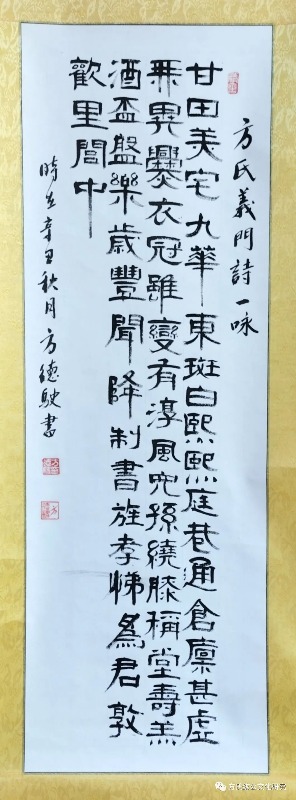 方氏義門詩一咏
甘田美宅九華東斑白熙熙庭巷通倉廩甚虛
無異爨衣冠雖變有淳風兒孫繞膝稱堂壽羔
酒盃盤樂歲豐聞降制書旌孝悌爲君敦
歡里閭中
時在辛丑秋月方德駛書